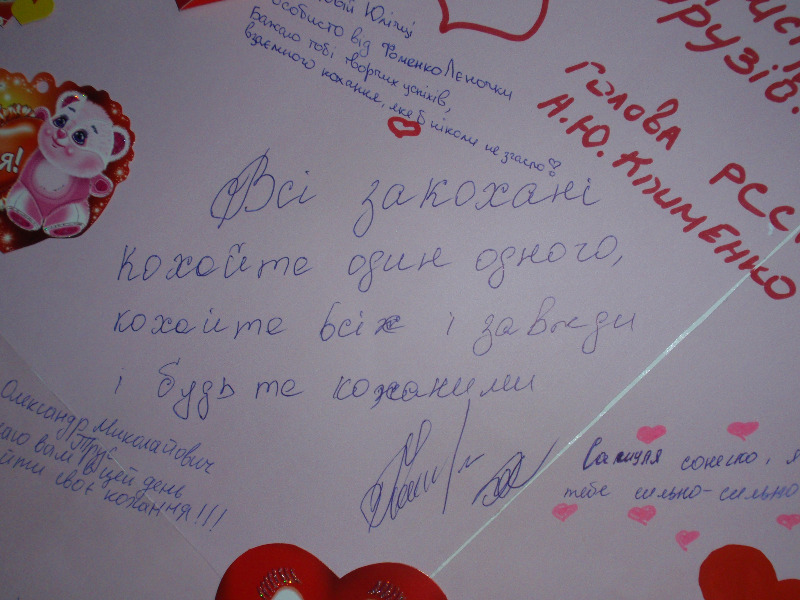 Юлічці
особисто від Фоменко Лєночки
Бажаю тобі творчих успіхів,
взаємного кохання, яке б ніколи не згасло
друзів.
Голова РСС
Н.Ю. Кизименко
Я!
Всі закохані
кохайте один одного,
кохайте всіх і завжди
і будьте коханими
Олександр Миколайович
Трус
вам в цей день
йти своє кохання!!!
сонечко, я
тебе сильно-сильно